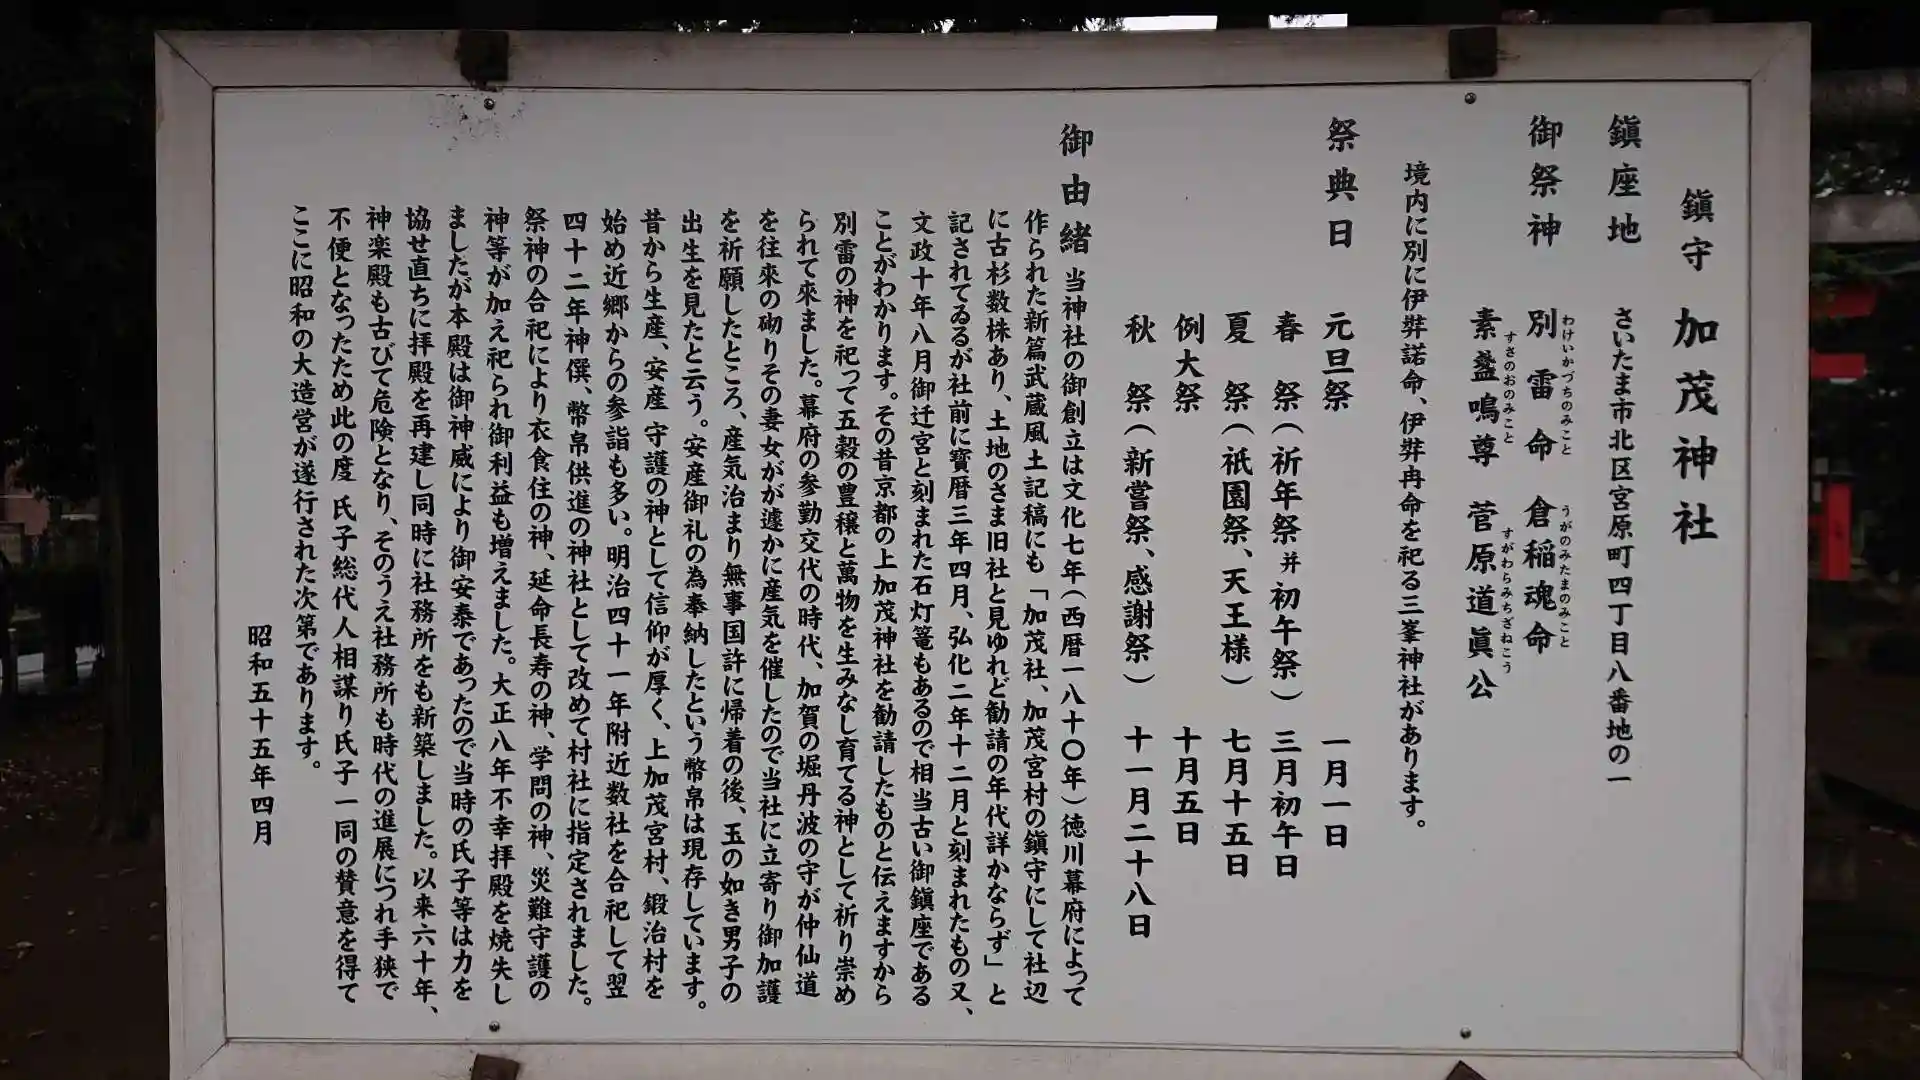 鎮守 加茂神社
鎮座地 さいたま市北区宮原町四丁目八番地の一
御祭神 別雷命 倉稲魂命
わけいかづちのみこと うがのみたまのみこと
素盞嗚尊 菅原道眞公
すさのおのみこと すがわらみちざねこう
境内に別に伊弉諾命、伊弉冉命を祀る三峯神社があります。
祭典日 元旦祭 一月一日
春祭(祈年祭并初午祭) 三月初午日
夏祭(祇園祭、天王様) 七月十五日
例大祭 十月五日
秋祭(新嘗祭、感謝祭) 十一月二十八日
御由緒 当神社の御創立は文化七年(西暦一八十〇年)徳川幕府によって
作られた新篇武蔵風土記稿にも「加茂社、加茂宮村の鎮守にして社辺
に古杉数株あり、土地のさま旧社と見ゆれど勧請の年代詳かならず」と
記されてゐるが社前に寳暦三年四月、弘化二年十二月と刻まれたもの又、
文政十年八月御迁宮と刻まれた石灯篭もあるので相当古い御鎮座である
ことがわかります。その昔京都の上加茂神社を勧請したものと伝えますから
別雷の神を祀って五穀の豊穣と萬物を生みなし育てる神として祈り崇め
られて來ました。幕府の参勤交代の時代、加賀の堀丹波の守が仲仙道
を往來の砌りその妻女がが遽かに産気を催したので当社に立寄り御加護
を祈願したところ、産気治まり無事国許に帰着の後、玉の如き男子の
出生を見たと云う。安産御礼の為奉納したという幣帛は現存しています。
昔から生産、安産 守護の神として信仰が厚く、上加茂宮村、鍛治村を
始め近郷からの参詣も多い。明治四十一年附近数社を合祀して翌
四十二年神饌、幣帛供進の神社として改めて村社に指定されました。
祭神の合祀により衣食住の神、延命長寿の神、学問の神、災難守護の
神等が加え祀られ御利益も増えました。大正八年不幸拝殿を焼失し
ましたが本殿は御神威により御安泰であったので当時の氏子等は力を
協せ直ちに拝殿を再建し同時に社務所をも新築しました。以来六十年、
神楽殿も古びて危険となり、そのうえ社務所も時代の進展につれ手狭で
不便となったため此の度 氏子総代人相謀り氏子一同の賛意を得て
ここに昭和の大造営が遂行された次第であります。
昭和五十五年四月